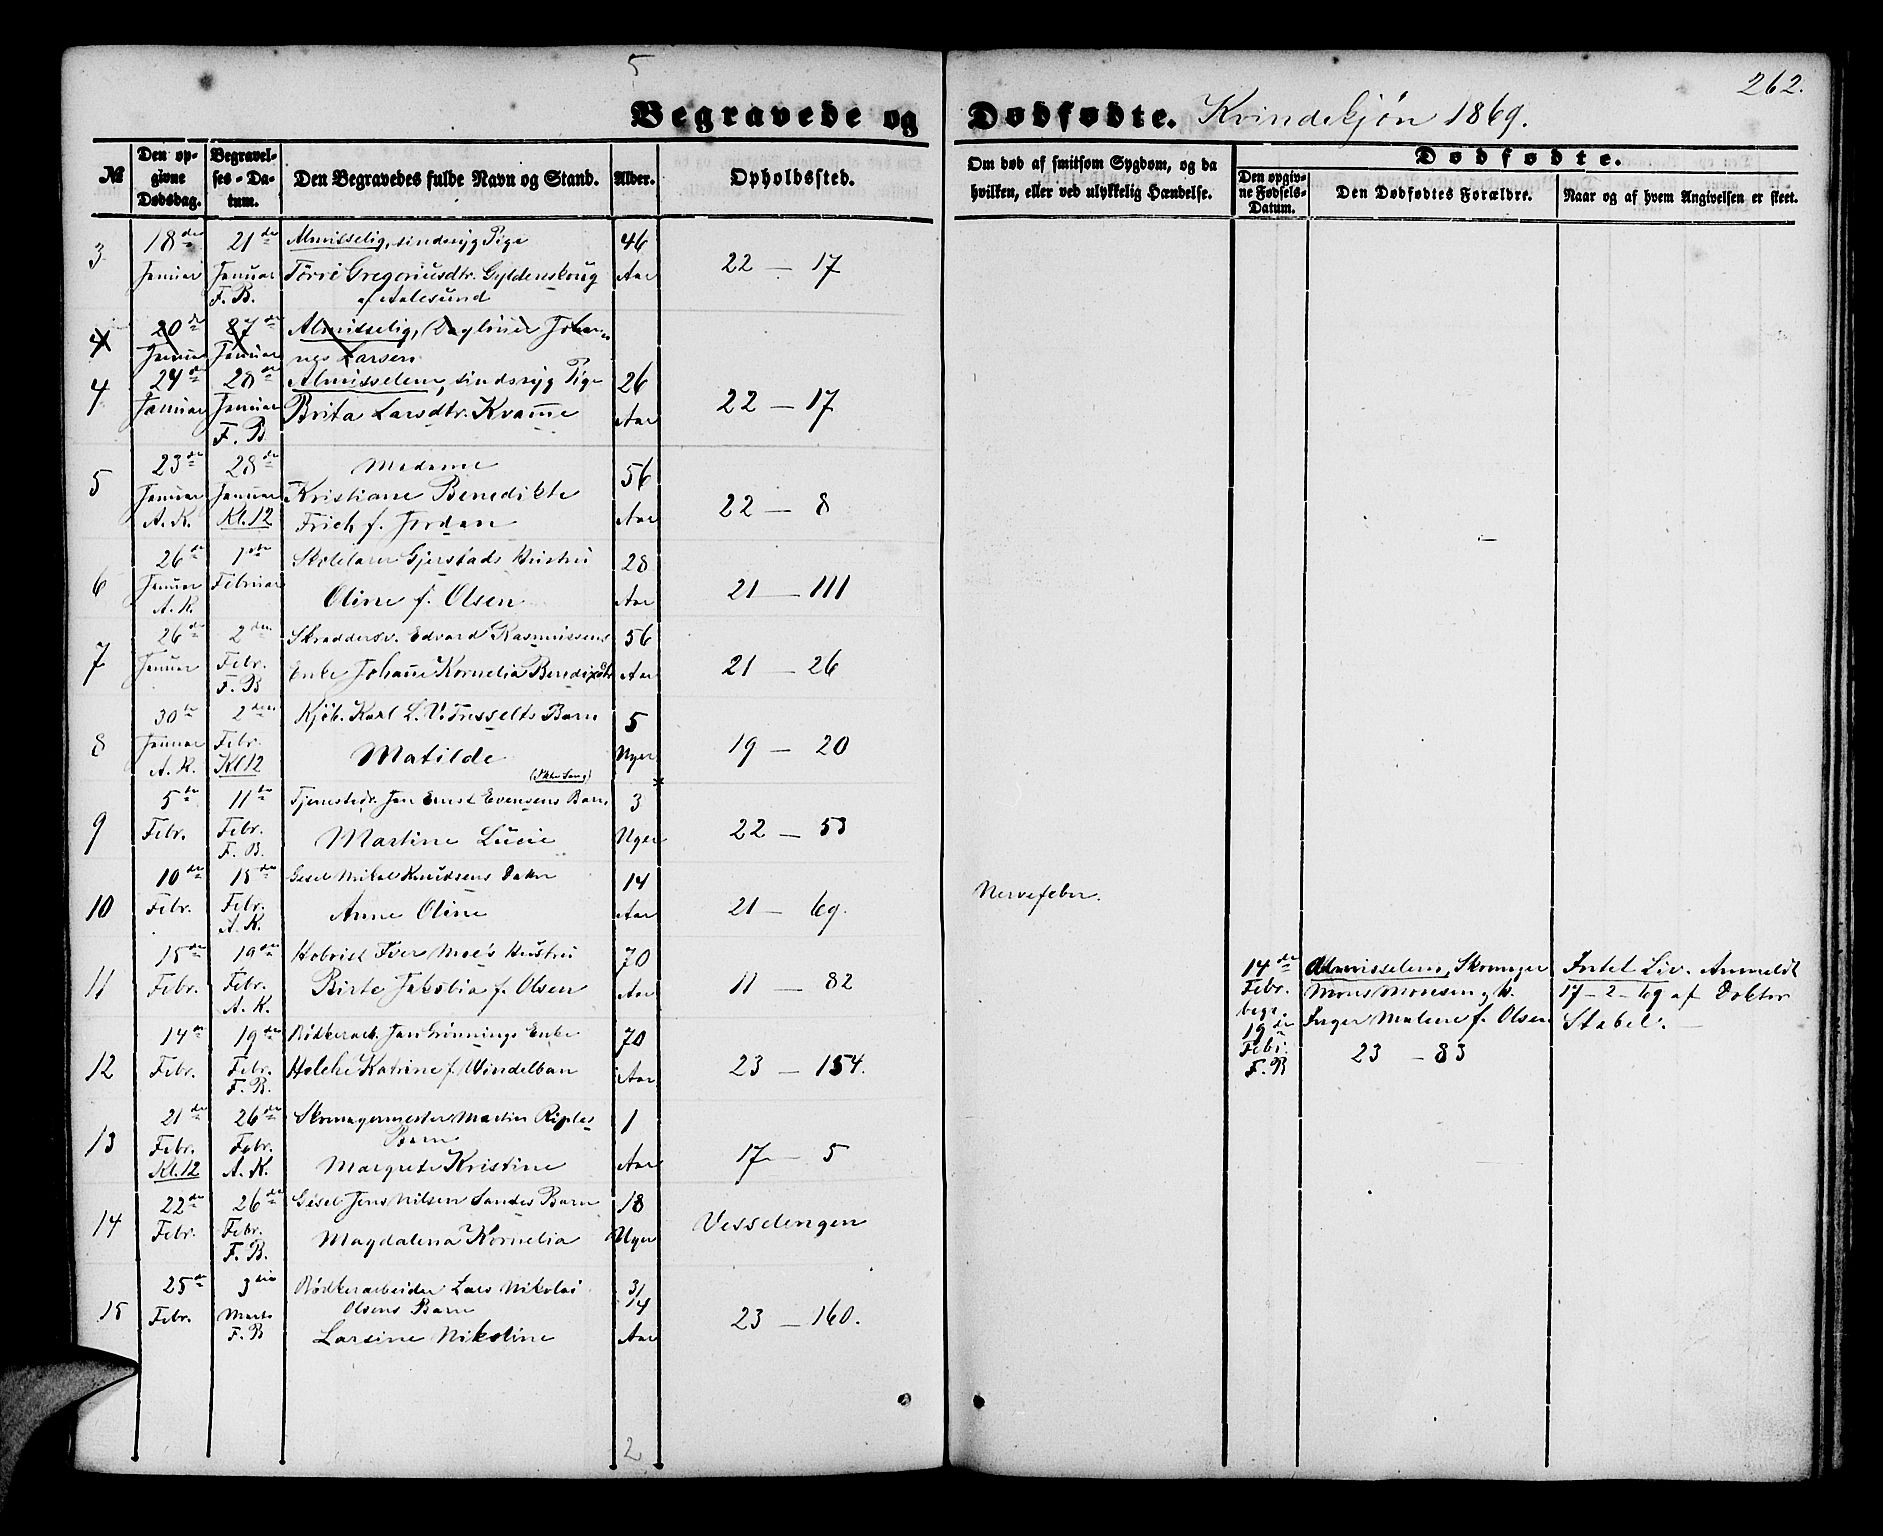 5
262.
Begravede og Dødfødte. Kvindekjön 1869.
№
Den opgivne Dødsdag.
Begravelses-Datum.
Den Begravedes fulde Navn og Stand.
Alder.
Opholdssted.
Om død af smitsom Sygdom, og da hvilken, eller ved ulykkelig Hændelse.
Dødfødte.
Den opgivne Fødsels-Datum.
Den Dødfødtes Forældre.
Naar og af hvem Angivelsen er skeet.
3 18de Januar 21de Januar F. B. Almisselig, sindssyg Pige 46 Aar 22 – 17
Gregoriusdtr. Gyldenskoug
af Aalesund
4 20de Januar 27de Januar Almisselig, Daglöner Johan-
nes Larsen
4 24de Januar 28de Januar F. B Almisselem, sindssyg Pige 26 Aar 22 – 17
Brita Larsdtr. Kvamme
5 23de Januar A. K. 28de Januar Kl. 12 Madame 56 Aar 22 – 8
Kristiane Benedikte
Frich f. Jordan
6 26de Januar A. K. 1ste Februar Skolelærer Gjerstads Hustru 28 Aar 21 – 111
Oline f. Olsen
7 26de Januar 2den Febr. F. B Skræddersv. Edvard Rasmussens 56 Aar 21 – 26
Enke Johanne Kornelia Bendixdtr
8 30te Januar A. K. 2den Febr. Kl 12 Kjöb. Karl L. V. Tresselts Barn 5 Uger 19 – 20
Matilde
9 5te Febr. 11te Febr. F. B. Jan Ernst Evensens Barn 3 Uger 22 – 53
Martine Lucie
10 10de Febr. 15de Febr. A. K. Gesel Mikal Knudsens Datter 14 Aar 21 – 69. Nervefeber.
Anne Oline
11 15de Febr. 19de Febr. A. K. Iver Moe's Hustru 70 Aar 11 – 82
Birte Jakobia f. Olsen
12 14de Febr. 19de Febr. F. B. Bödkerarb. Jan Grönnings Enke 70 Aar 23 – 154.
Katrine f. Windelban
13 21de Febr. Kl. 12 26de Febr. A. K. Skomagermester Martin 1 Aar 17 – 5
Barn
Margrete Kristine
14 22de Febr. 26de Febr. F. B. Gesel Jens Nilsen Sandes Barn 18 Uger
Magdalena Kornelia
15 25de Febr. 3die Marts F. B Bödkerarbeider Lars Nikolai 3/14 Aar 23 – 160.
Olsens Barn
Larsine Nikoline
14de Febr. begr. 19de Febr. F. B
Almisselem, Skomager
Mons Monsen, h.
Inger Malene f. Olsen
23 – 83
Intet Liv. Anmeldt
17 – 2 – 69 af Doktor
Stabel. –
2